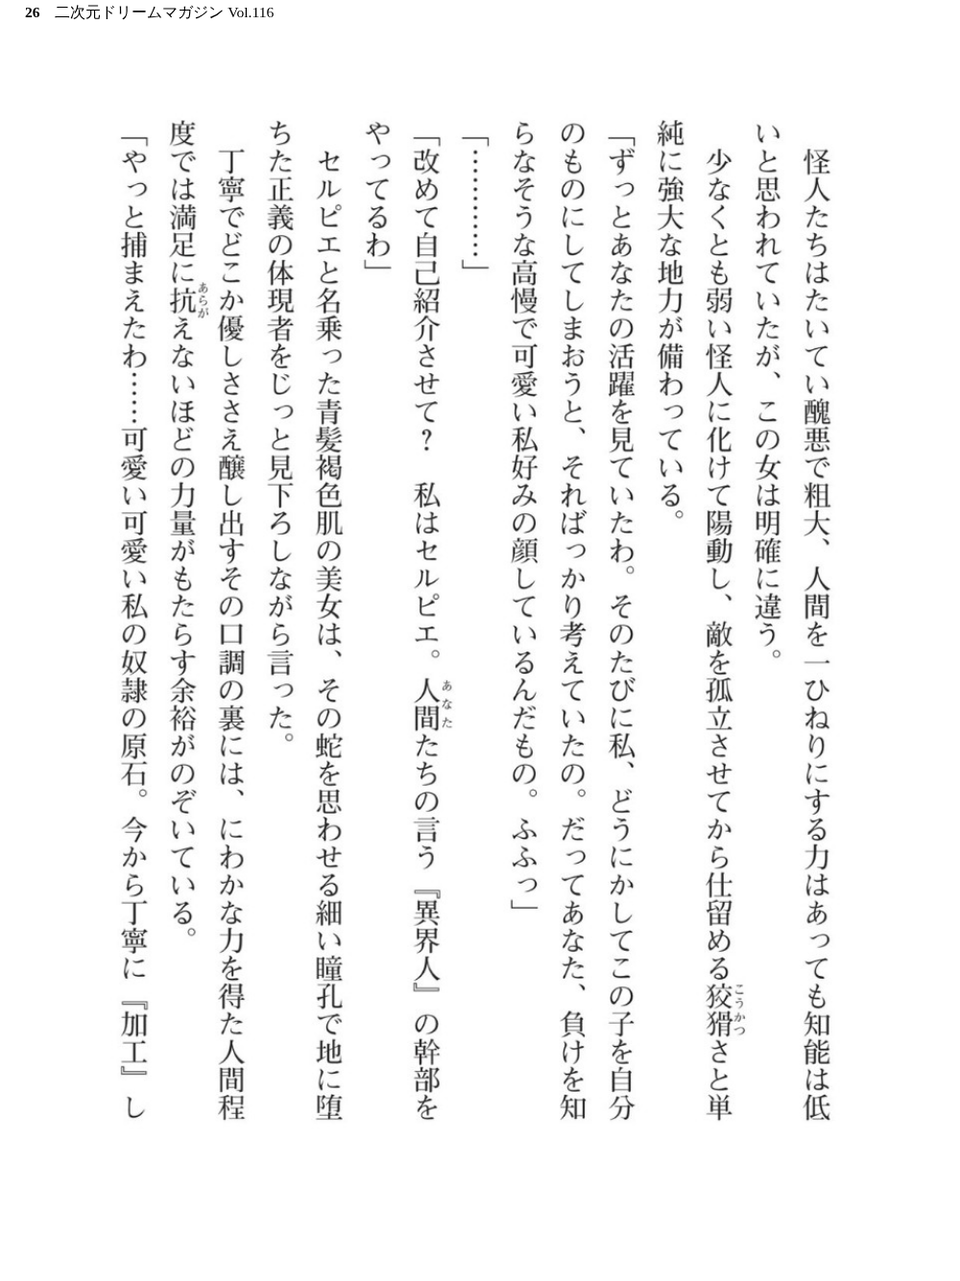 26 二次元ドリームマガジン Vol.116
怪人たちはたいてい醜悪で粗大、人間を一ひねりにする力はあっても知能は低
いと思われていたが、この女は明確に違う。
少なくとも弱い怪人に化けて陽動し、敵を孤立させてから仕留める狡猾さと単
純に強大な地力が備わっている。
「ずっとあなたの活躍を見ていたわ。そのたびに私、どうにかしてこの子を自分
のものにしてしまおうと、そればっかり考えていたの。だってあなた、負けを知
らなそうな高慢で可愛い私好みの顔しているんだもの。ふふっ」
「…………」
「改めて自己紹介させて？　私はセルピエ。人間たちの言う『異界人』の幹部を
やってるわ」
セルピエと名乗った青髪褐色肌の美女は、その蛇を思わせる細い瞳孔で地に堕
ちた正義の体現者をじっと見下ろしながら言った。
丁寧でどこか優しささえ醸し出すその口調の裏には、にわかな力を得た人間程
度では満足に抗えないほどの力量がもたらす余裕がのぞいている。
「やっと捕まえたわ……可愛い可愛い私の奴隷の原石。今から丁寧に『加工』し